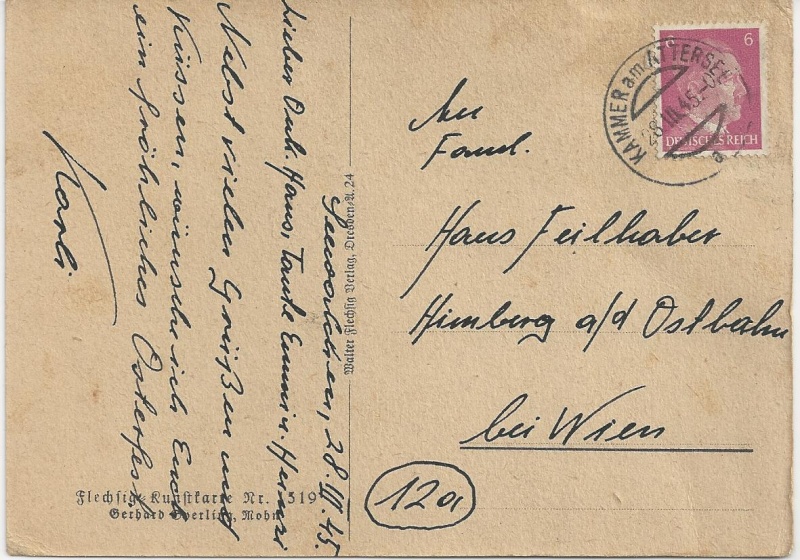 Seewalchen, 28.III.45.
Lieber Onk. Hans, Tante Emmi u. Hermi
Nebst vielen Grüßen und
Küssen, wünsche ich Euch
ein fröhliches Osterfest.
Karli
Walter Flechsig Verlag, Dresden-A. 24
Flechsig-Kunstkarte Nr. 519
Gerhard Sperling, Mohn
6
DEUTSCHES REICH
KAMMER am ATTERSEE
28.III.45.-0
a
An
Faml.
Hans Feilhaber
Himberg a/d Ostbahn
bei Wien
12a